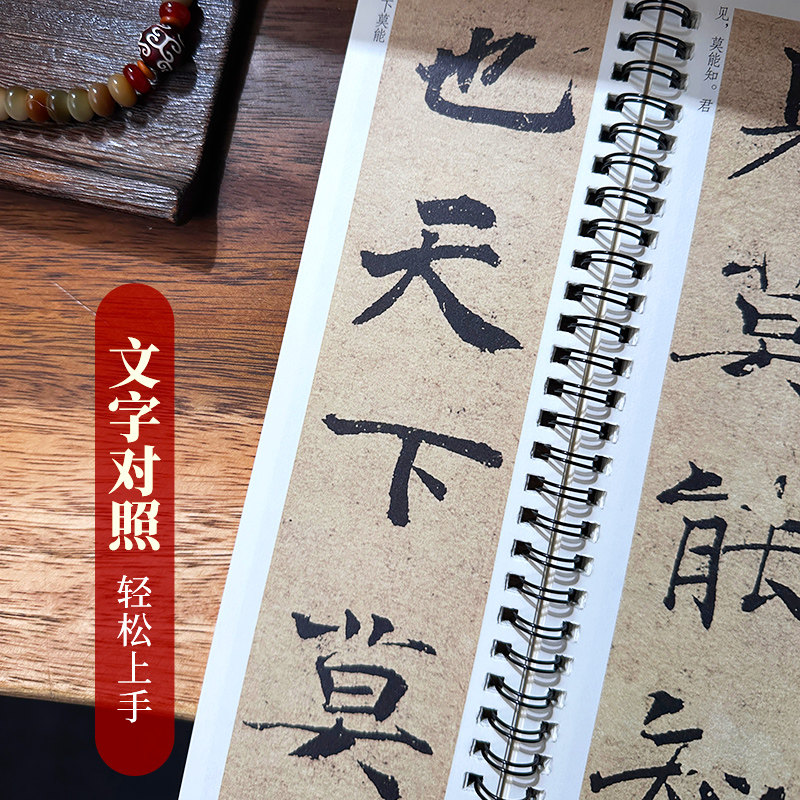 下莫能
也天下莫
见，莫能知。君
莫能知
文字对照
轻松上手